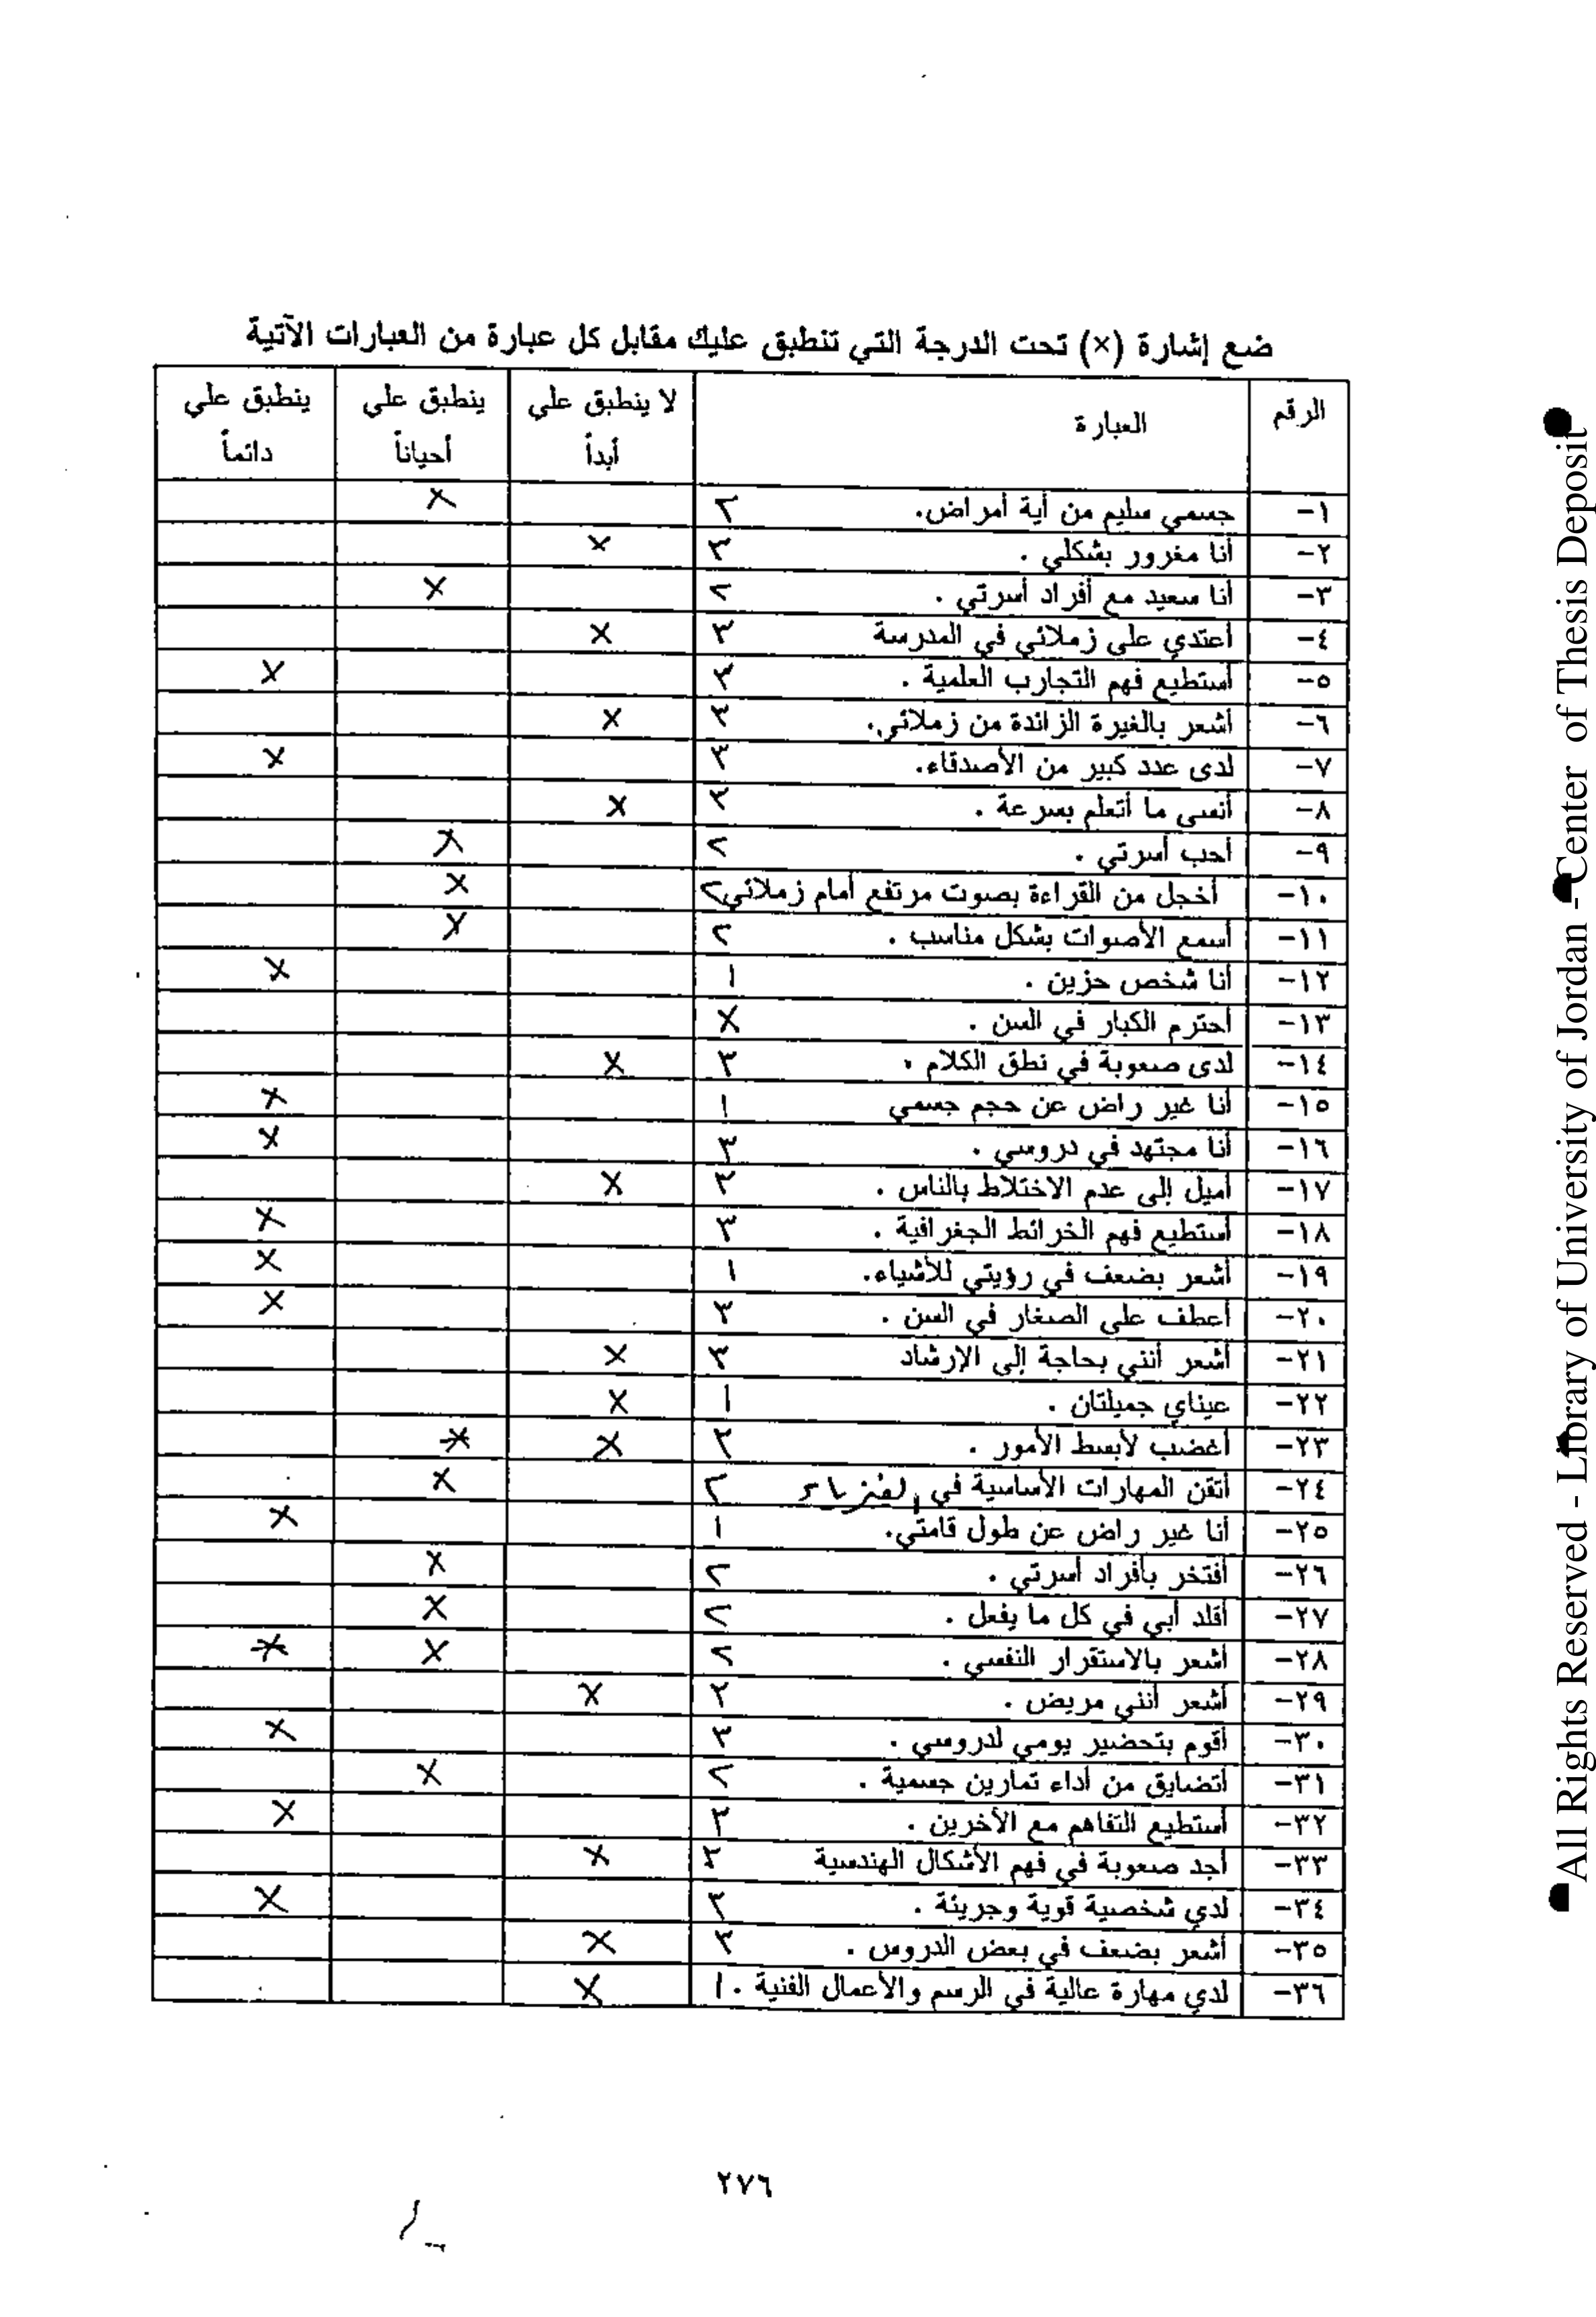 ضع إشارة (×) تحت الدرجة التي تنطبق عليك مقابل كل عبارة من العبارات الآتية
الرقم العبارة لا ينطبق علي أبداً ينطبق علي أحياناً ينطبق علي دائماً
١- جسمي سليم من أية أمراض. ٢ ×
٢- أنا مغرور بشكلي . ٣ ×
٣- أنا سعيد مع أفراد أسرتي . ٢ ×
٤- أعتدي على زملائي في المدرسة ٣ ×
٥- أستطيع فهم التجارب العلمية . ٣ ×
٦- أشعر بالغيرة الزائدة من زملائي. ٣ ×
٧- لدى عدد كبير من الأصدقاء. ٣ ×
٨- أنسى ما أتعلم بسرعة . ٣ ×
٩- أحب أسرتي . ٢ ×
١٠- أخجل من القراءة بصوت مرتفع أمام زملائي ٢ ×
١١- أسمع الأصوات بشكل مناسب . ٢ ×
١٢- أنا شخص حزين . ١ ×
١٣- أحترم الكبار في السن . ×
١٤- لدى صعوبة في نطق الكلام . ٣ ×
١٥- أنا غير راض عن حجم جسمي ١ ×
١٦- أنا مجتهد في دروسي . ٣ ×
١٧- أميل إلى عدم الاختلاط بالناس . ٣ ×
١٨- أستطيع فهم الخرائط الجغرافية . ٣ ×
١٩- أشعر بضعف في رؤيتي للأشياء. ١ ×
٢٠- أعطف على الصغار في السن . ٣ ×
٢١- أشعر أنني بحاجة إلى الإرشاد ٣ ×
٢٢- عيناي جميلتان . ١ ×
٢٣- أغضب لأبسط الأمور . ٣ × ×
٢٤- أتقن المهارات الأساسية في الفيزياء ٢ ×
٢٥- أنا غير راض عن طول قامتي. ١ ×
٢٦- أفتخر بأفراد أسرتي . ٢ ×
٢٧- أقلد أبي في كل ما يفعل . ٢ ×
٢٨- أشعر بالاستقرار النفسي . ٢ × ×
٢٩- أشعر أنني مريض . ٣ ×
٣٠- أقوم بتحضير يومي لدروسي . ٣ ×
٣١- أتضايق من أداء تمارين جسمية . ٢ ×
٣٢- أستطيع التفاهم مع الآخرين . ٣ ×
٣٣- أجد صعوبة في فهم الأشكال الهندسية ٣ ×
٣٤- لدي شخصية قوية وجريئة . ٣ ×
٣٥- أشعر بضعف في بعض الدروس . ٣ ×
٣٦- لدي مهارة عالية في الرسم والأعمال الفنية . ١ ×
٢٧٦
All Rights Reserved - Library of University of Jordan - Center of Thesis Deposit